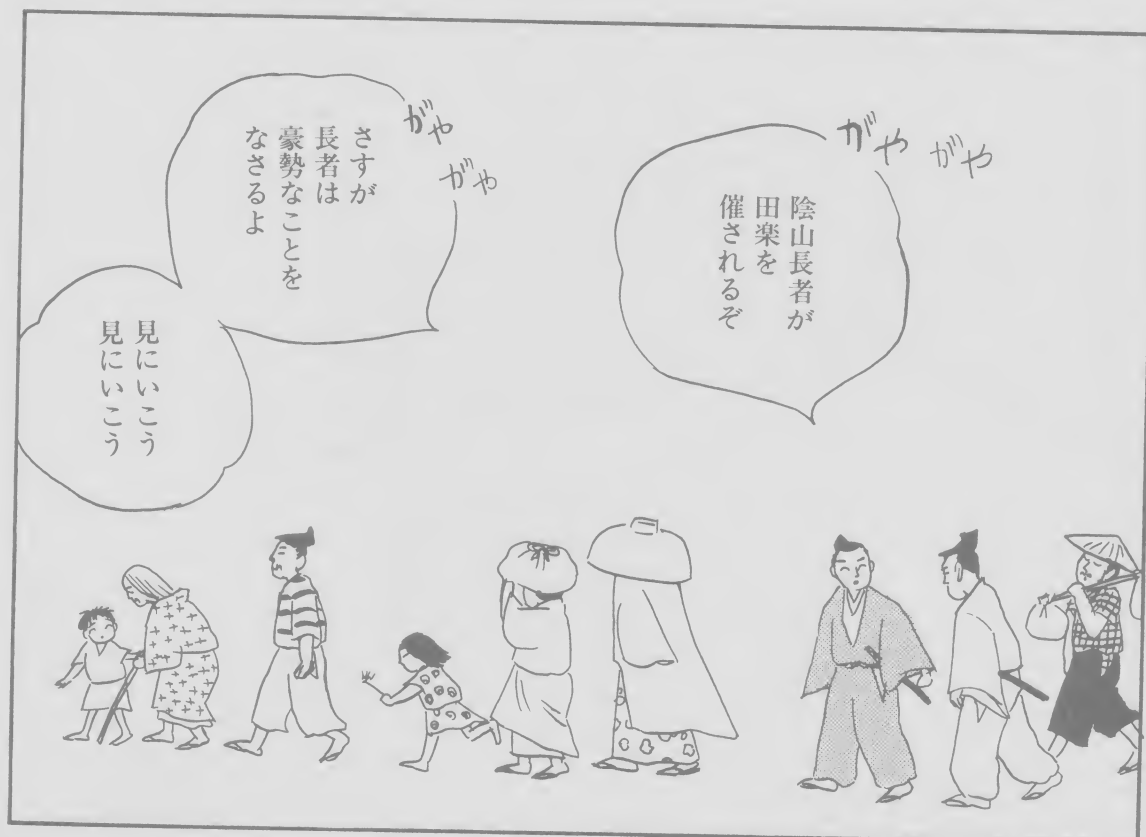 がや
がや
陰山長者が
田楽を
催されるぞ
がや
がや
さすが
長者は
豪勢なことを
なさるよ
見にいこう
見にいこう